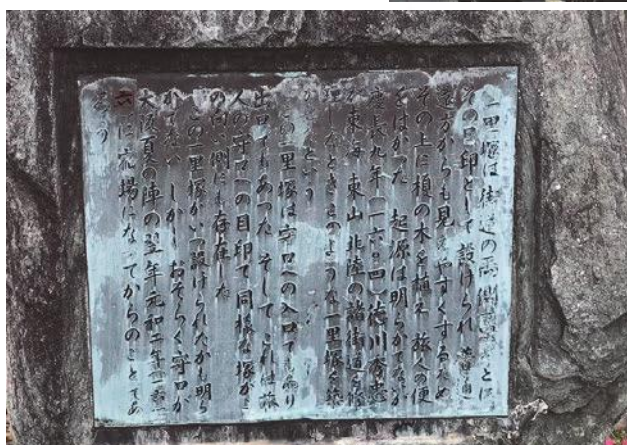 一里塚は街道の両側一里ごとに
その目印として設けられ 普通
遠方からも見えやすくするため
その上に榎の木を植え 旅人の便
をはかった 起源は明らかでないが
慶長九年(一六〇四)徳川秀忠
が東海 東山 北陸の諸街道を修
理したときこのような一里塚を築
という
この一里塚は守口への入口でもあり
出口でもあった そして これは旅
人の守口への目印で 同様な塚がこ
の向い側にも存在した
この一里塚がいつ設けられたかも明ら
かでない しかし おそらく守口が
大坂夏の陣の翌年元和二年(一六一
六)に宿場になってからのことであ
ろう